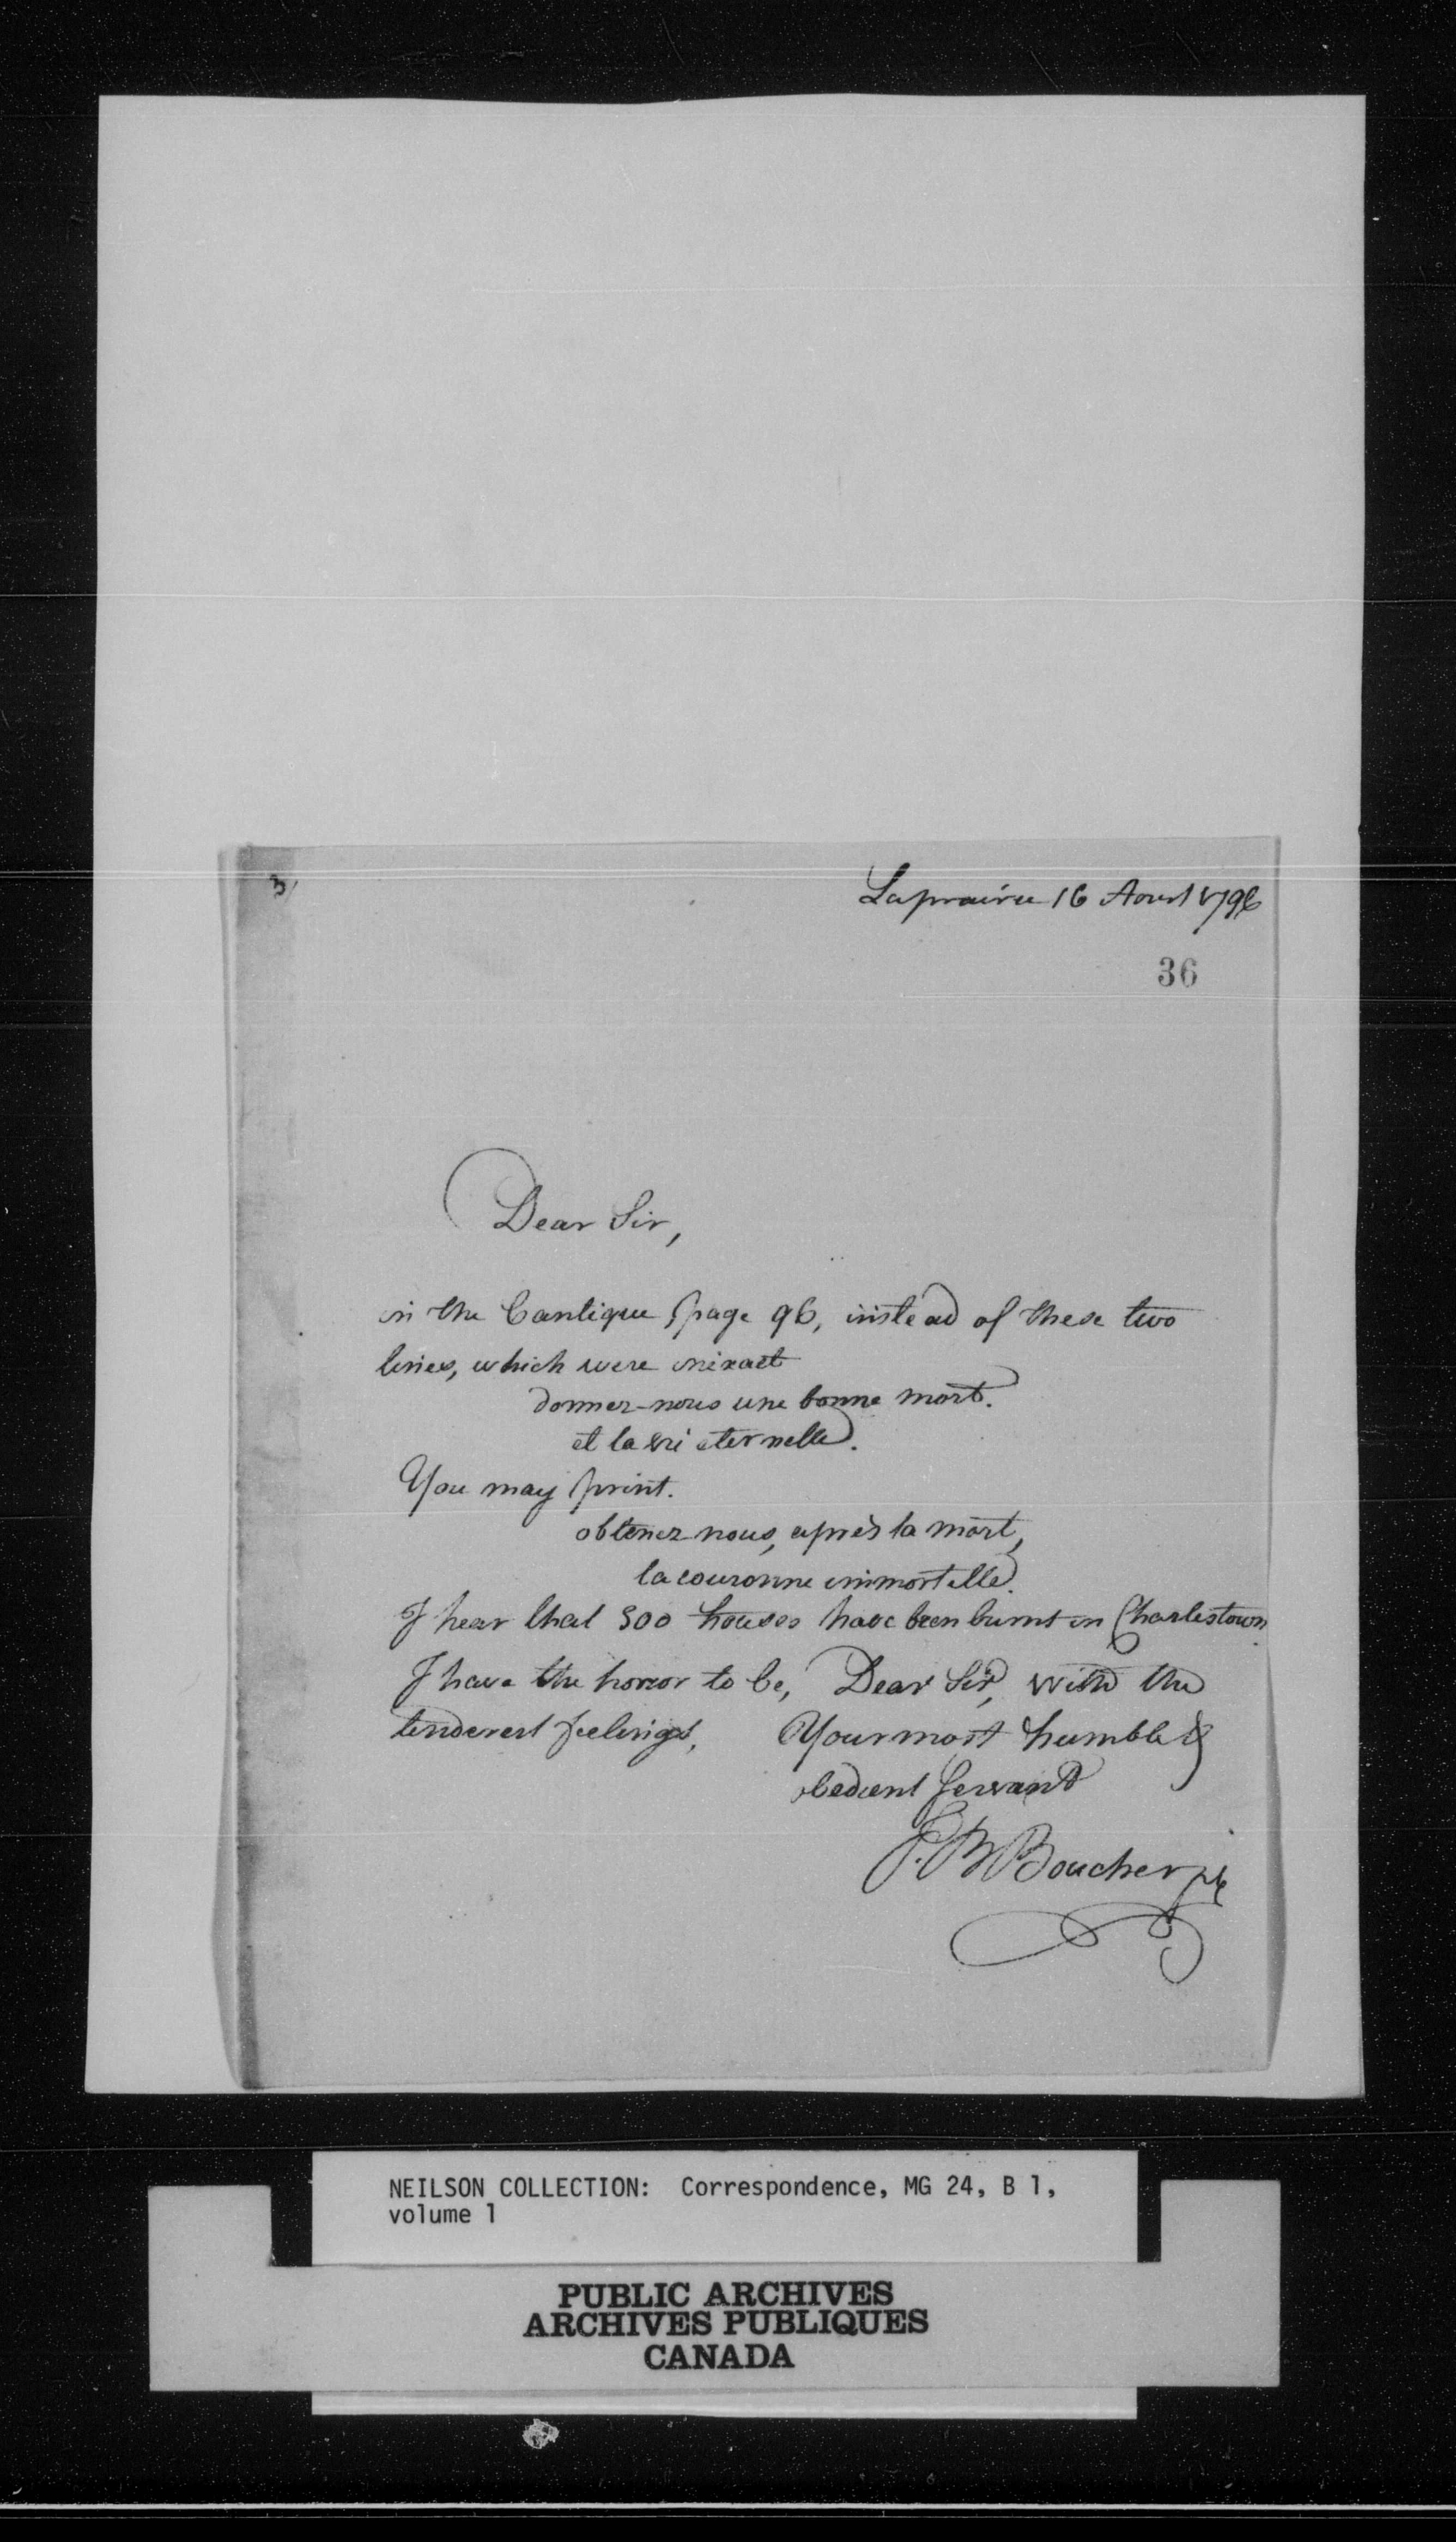 3,
Laprairie 16 Aoust 1796
36
Dear Sir,
in the Cantique page 96, instead of these two
lines, which were inexact
donnez-nous une bonne mort.
et la vie eternelle.
You may print.
obtenez nous, après la mort,
la couronne immortelle.
I hear that 500 houses have been burnt in Charlestown
I have the honor to be, Dear Sir, with the
tenderest feelings, Your most humble &
obedient servant
J. B. Boucher ptre
NEILSON COLLECTION: Correspondence, MG 24, B 1,
volume 1
PUBLIC ARCHIVES
ARCHIVES PUBLIQUES
CANADA